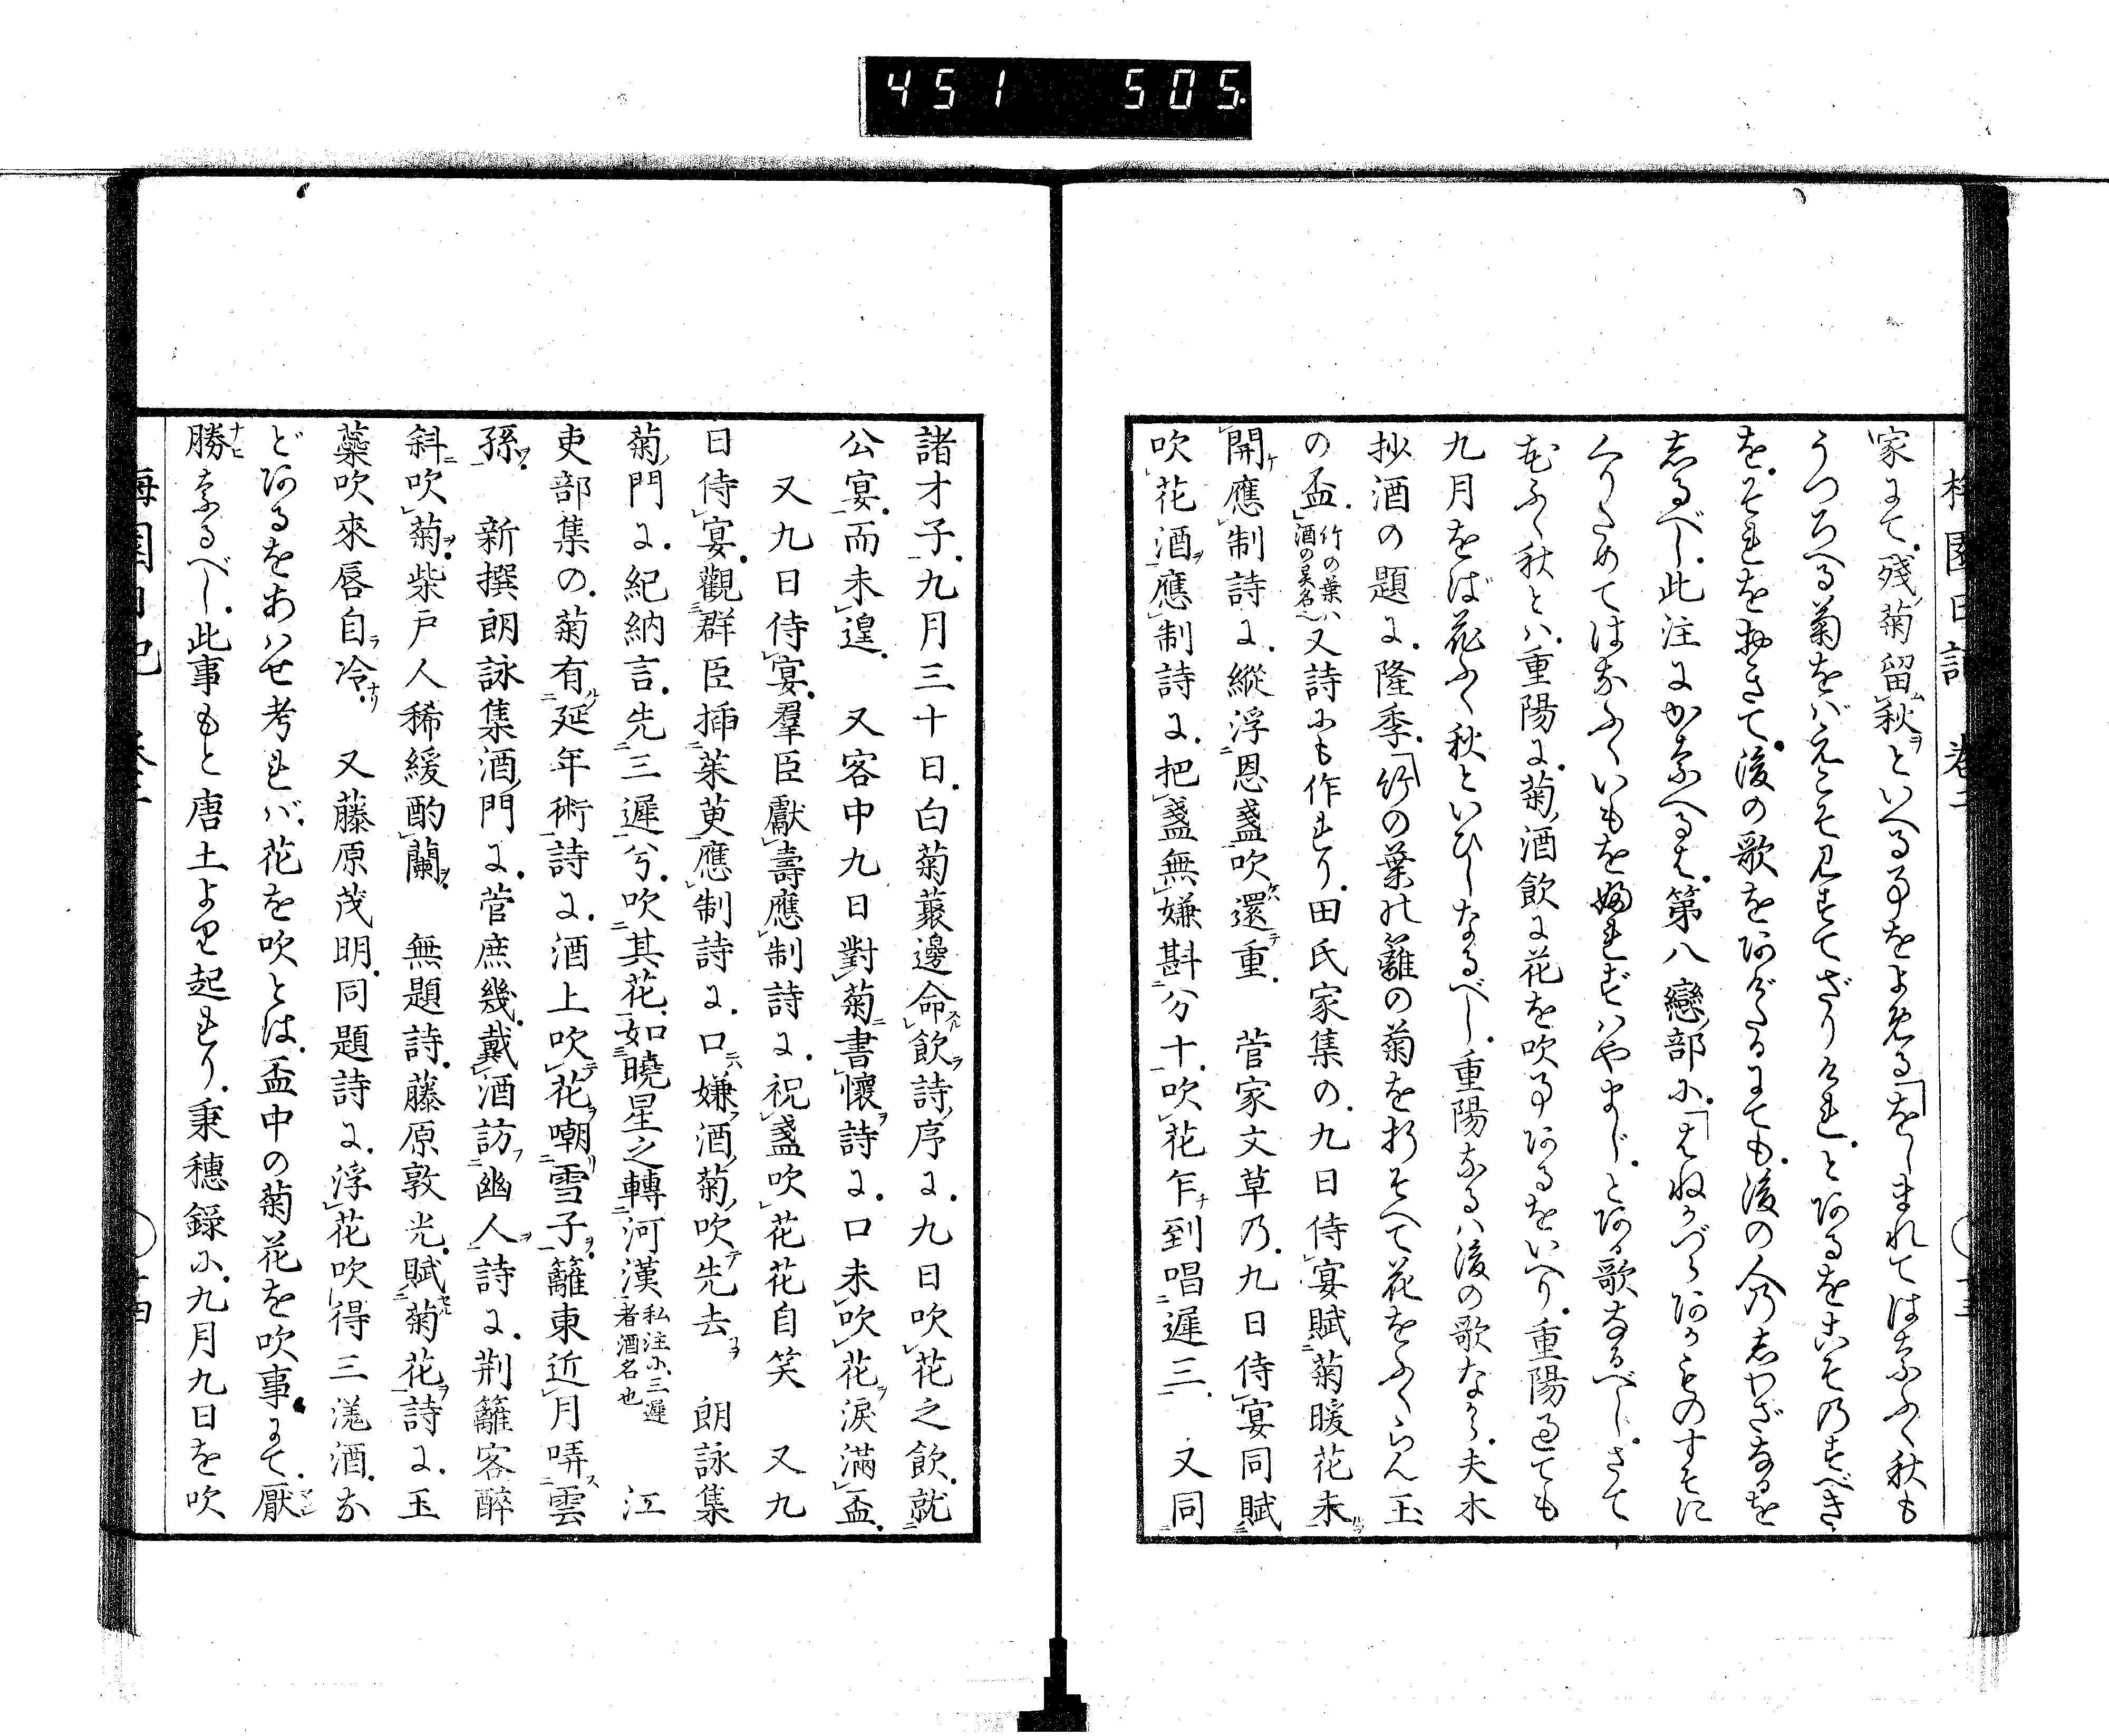 451 505.
家にて。残菊留秋といへる事をよめる「をしまれてはなふく秋も
うつろへる菊をバえこそ見すてざりけれ。とあるをこそのすべき
を。それをおきて。後の歌をあげたるにても。後の人のしわざなるを
しるべし。此注にかなへるは。第八戀部に。「はねかづら
くりためてはなふくいもを
花ふく秋とハ。重陽に。菊酒飲に花を吹事あるをいへり。重陽過ても
九月をば花ふく秋といひしなるべし。重陽なるハ後の歌ながら。夫木
抄酒の題に。隆季。「竹の葉に籬の菊を折そへて花をふくらん玉
の盃。竹の葉ハ酒の異名也又詩にも作れり。田氏家集の。九日侍宴賦菊暖花未
開應制詩に。縱浮恩盞吹還重。　菅家文草乃。九日侍宴同賦
吹花酒應制詩に。把盞無嫌斟分十。吹花乍到唱遲三。　又同
諸才子。九月三十日。白菊叢邊命飲詩序に。九日吹花之飲。就
公宴。而未遑。　又客中九日對菊書懷詩に。口未吹花涙滿盃。
又九日侍宴。羣臣獻壽應制詩に。祝盞吹花花自笑　又九
日侍宴。觀群臣插茱萸應制詩に。口嫌酒菊吹先去　朗詠集
菊門に。紀納言。先三遲兮。吹其花如曉星之轉河漢私注ニ三遲者酒名也　江
吏部集の。菊有延年術詩に。酒上吹花嘲雪子。籬東近月哢雲
孫。　新撰朗詠集酒門に。菅庶幾。戴酒訪幽人詩に。荆籬客醉
斜吹菊。柴戸人稀緩酌蘭。　無題詩。藤原敦光。賦菊花詩に。玉
蘂吹來唇自冷。　又藤原茂明。同題詩に。浮花吹得三遲酒。な
どあるをあハせ考れバ。花を吹とは。盃中の菊花を吹事にて。厭
勝なるべし。此事もと唐土より起れり。秉穗錄に。九月九日を吹